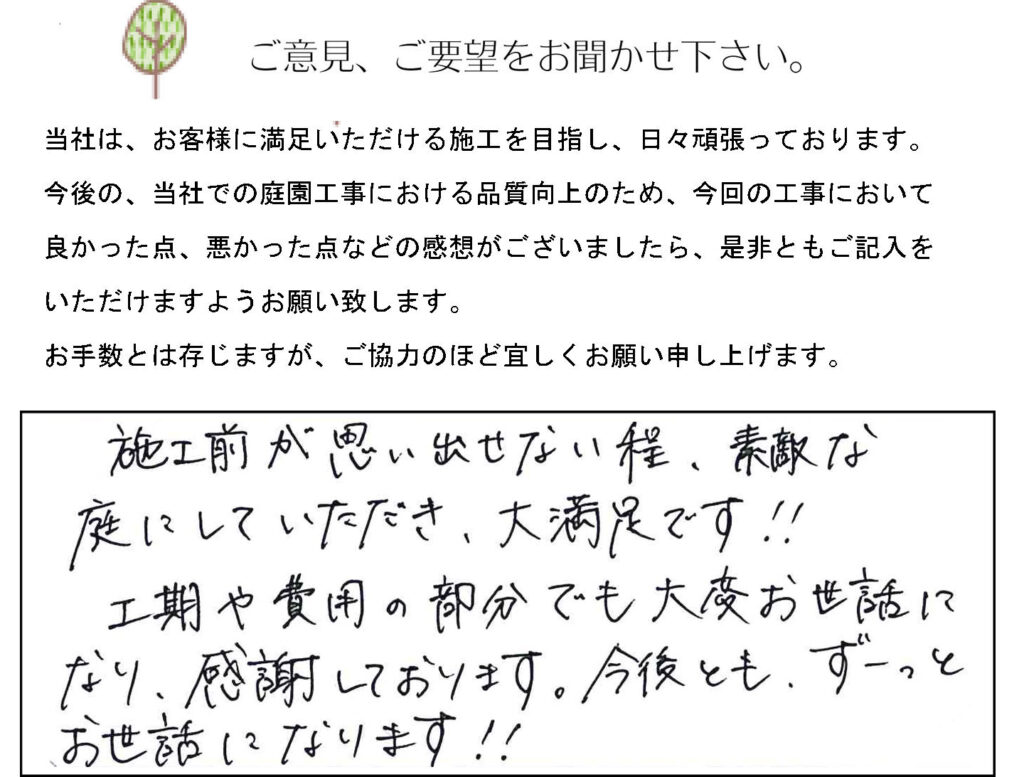 ご意見、ご要望をお聞かせ下さい。
当社は、お客様に満足いただける施工を目指し、日々頑張っております。
今後の、当社での庭園工事における品質向上のため、今回の工事において
良かった点、悪かった点などの感想がございましたら、是非ともご記入を
いただけますようお願い致します。
お手数とは存じますが、ご協力のほど宜しくお願い申し上げます。
施工前が思い出せない程、素敵な
庭にしていただき、大満足です!!
工期や費用の部分でも大変お世話に
なり、感謝しております。今後とも、ずーっと
お世話になります!!